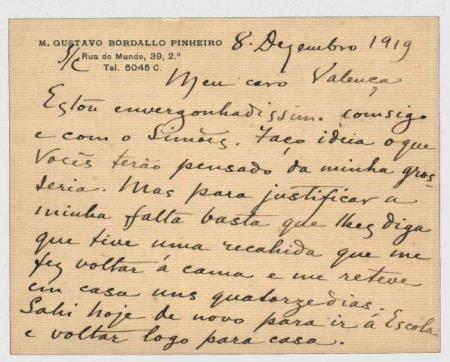 M. GUSTAVO BORDALLO PINHEIRO
8. Dezembro 1919
Rua do Mundo, 39, 2.º
S/C Tel. 5045 C.
Meu caro Valença
Estou envergonhadissimo comsigo
e com o Simões. Faço idéia o que
Vocês terão pensado da minha gros-
seria. Mas para justificar a
minha falta basta que lhes diga
que tive uma recahida que me
fez voltar á cama e me reteve
em casa uns quatorze dias.
Sahi hoje de novo para ir á Escola
e voltar logo para casa.